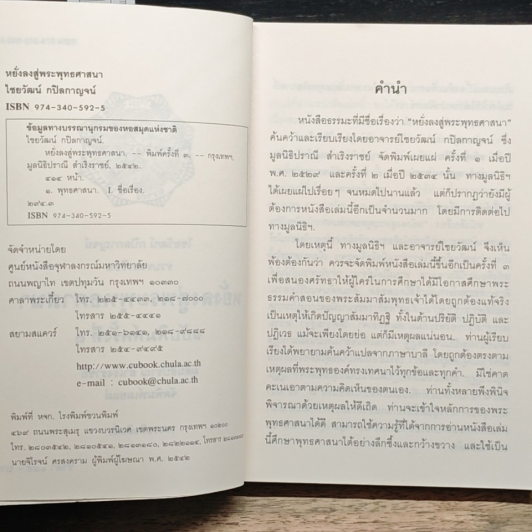 หยั่งลงสู่พระพุทธศาสนา
ไชยวัฒน์ กปิลกาญจน์
ISBN 974-340-592-5
ข้อมูลทางบรรณานุกรมของหอสมุดแห่งชาติ
ไชยวัฒน์ กปิลกาญจน์.
หยั่งลงสู่พระพุทธศาสนา. -- พิมพ์ครั้งที่ ๓. -- กรุงเทพฯ.
มูลนิธิปราณี สำเริงราชย์, ๒๕๔๒.
๔๑๔ หน้า.
๑. พุทธศาสนา. I. ชื่อเรื่อง.
๒๙๔.๓
ISBN 974-340-592-5
จัดจำหน่ายโดย
ศูนย์หนังสือจุฬาลงกรณ์มหาวิทยาลัย
ถนนพญาไท เขตปทุมวัน กรุงเทพฯ ๑๐๓๓๐
ศาลาพระเกี้ยว โทร. ๒๕๕-๔๔๓๓, ๒๑๘-๗๐๐๐
โทรสาร ๒๕๕-๔๔๔๑
สยามสแควร์ โทร. ๒๕๑-๖๑๔๑, ๒๑๘-๙๘๘๘
โทรสาร ๒๕๔-๙๔๙๕
http://www.cubook.chula.ac.th
e-mail : cubook@chula.ac.th
พิมพ์ที่ หจก. โรงพิมพ์ชวนพิมพ์
๔๖๙ ถนนพระสุเมรุ แขวงบวรนิเวศ เขตพระนคร กรุงเทพฯ ๑๐๒๐๐
โทร. ๒๘๐๓๕๔๒, ๒๘๑๐๕๔๑, ๒๘๑๓๑๘๐, ๒๘๒๒๑๑๔, โทรสาร
นายจิโรจน์ ครสงคราม ผู้พิมพ์ผู้โฆษณา พ.ศ. ๒๕๔๒
คำนำ
หนังสือธรรมะที่มีชื่อเรื่องว่า "หยั่งลงสู่พระพุทธศาสนา"
ค้นคว้าและเรียบเรียงโดยอาจารย์ไชยวัฒน์ กปิลกาญจน์ ซึ่ง
มูลนิธิปราณี สำเริงราชย์ จัดพิมพ์เผยแผ่ ครั้งที่ ๑ เมื่อปี
พ.ศ. ๒๕๒๙ และครั้งที่ ๒ เมื่อปี ๒๕๓๔ นั้น ทางมูลนิธิฯ
ได้เผยแผ่ไปเรื่อยๆ จนหมดไปนานแล้ว แต่ก็ปรากฏว่ายังมีผู้
ต้องการหนังสือเล่มนี้อีกเป็นจำนวนมาก โดยมีการติดต่อไป
ทางมูลนิธิฯ
โดยเหตุนี้ ทางมูลนิธิฯ และอาจารย์ไชยวัฒน์ จึงเห็น
พ้องต้องกันว่า ควรจะจัดพิมพ์หนังสือเล่มนี้ขึ้นอีกเป็นครั้งที่ ๓
เพื่อสนองศรัทธาให้ผู้ใคร่ในการศึกษาได้มีโอกาสศึกษาพระ
ธรรมคำสอนของพระสัมมาสัมพุทธเจ้าได้โดยถูกต้องแท้จริง
เป็นเหตุให้เกิดปัญญาสัมมาทิฏฐิ ทั้งในด้านปริยัติ ปฏิบัติ และ
ปฏิเวธ แม้จะเพียงโดยย่อ แต่ก็มีเหตุผลแน่นอน ท่านผู้เรียบ
เรียงได้พยายามค้นคว้าแปลจากภาษาบาลี โดยถูกต้องตรงตาม
เหตุผลที่พระพุทธองค์ทรงเทศนาไว้ทุกข้อและทุกคำ มิใช่คาด
คะเนเอาตามความคิดเห็นของตนเอง ท่านทั้งหลายพึงพินิจ
พิจารณาด้วยเหตุผลให้ดีเถิด ท่านจะเข้าใจหลักการของพระ
พุทธศาสนาได้ดี สามารถใช้ความรู้ที่ได้จากการอ่านหนังสือเล่ม
นี้ศึกษาพุทธศาสนาได้อย่างลึกซึ้งและกว้างขวาง และใช้เป็น